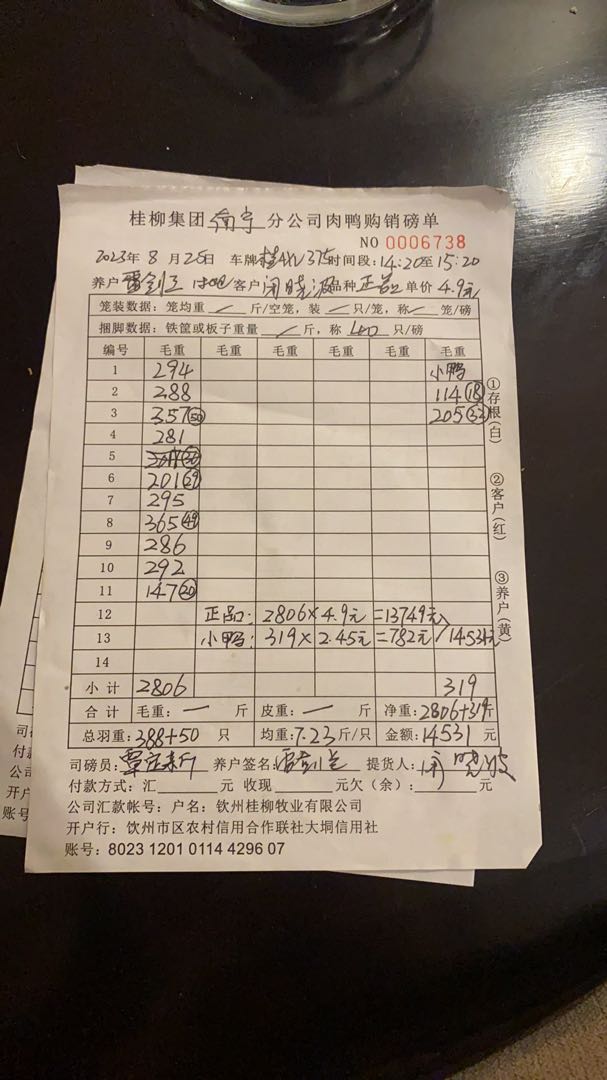 桂柳集团南宁分公司肉鸭购销磅单
NO 0006738
2023年 8 月 26日 车牌 375时间段:14:20至15:20
养户 客户 闭晓波品种 正品 单价 4.9元
笼装数据: 笼均重 / 斤/空笼, 装 / 只/笼, 称 / 笼/磅
捆脚数据: 铁筐或板子重量 / 斤, 称 40 只/磅
编号 毛重 毛重 毛重 毛重 毛重 毛重
1 294 小鸭
2 288 114 18
3 357 50 205 32
4 281
5
6 201 29
7 295
8 365 49
9 286
10 292
11 147 20
12 正品: 2806×4.9元=13749元
13 小鸭: 319×2.45元=782元 14531元
14
小计 2806 319
合计 毛重: 一 斤 皮重: 一 斤 净重:2806+319斤
总羽重:388+50 只 均重:7.23斤/只 金额:14531 元
司磅员: 养户签名: 提货人:闭晓波
付款方式: 汇 元 收现 元欠(余): 元
公司汇款帐号: 户名: 钦州桂柳牧业有限公司
开户行: 钦州市区农村信用合作联社大垌信用社
账号: 8023 1201 0114 4296 07
①存根(白)
②客户(红)
③养户(黄)
司
付
公司
开户
账号